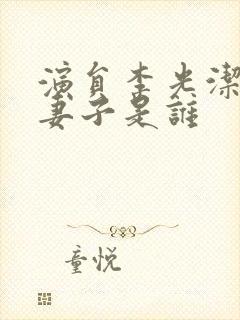 演員李光潔
妻子是誰
童悦